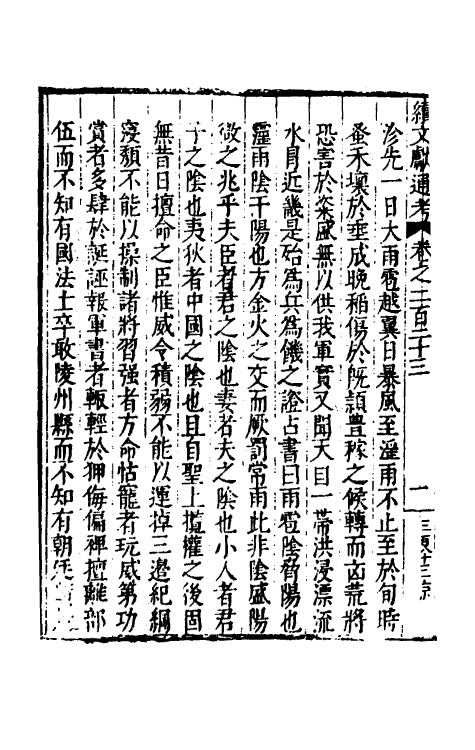 續文獻通考 卷之二百二十三
一
沴先一日大雨雹越翼日暴風至溼雨不止至於旬時
蚕禾壞於垂成晚稻傷於既穎豊稼之候轉而凶荒將
恐害於粢盛無以供我軍實又聞天目一帶洪浸漂流
水冐近畿是殆為兵為饑之證占書曰雨雹陰脅陽也
霪雨陰干陽也方金火之交而厥罰常雨此非陰盛陽
微之兆乎夫臣者君之陰也妻者夫之陰也小人者君
子之陰也夷狄者中國之陰也且自聖上攬權之後固
無昔日擅命之臣惟威令積弱不能以運掉三邉紀綱
寖頽不能以操制諸將習强者方命怙寵者玩威第功
賞者多肆於誕誣報軍書者輙輕於狎侮偏裨擅離部
伍而不知有國法士卒敢陵州縣而不知有朝廷